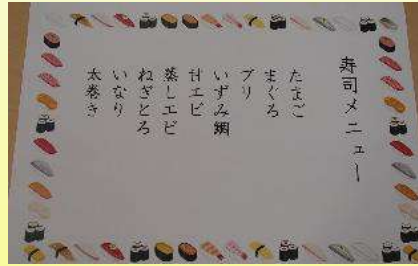 寿司メニュー
たまご
まぐろ
ブリ
いずみ鯛
甘エビ
蒸しエビ
ねぎとろ
いなり
太巻き